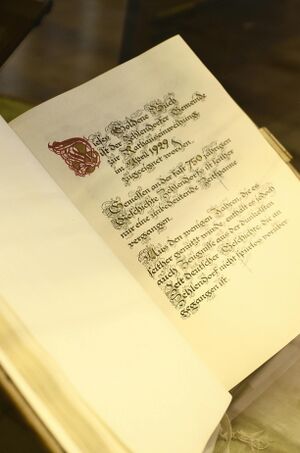 Dies Goldene Buch
ist der Zehlendorfer Gemeinde
zur Rathauseinweihung
im April 1929
zugeeignet worden.
Gemessen an der fast 750 jährigen
Geschichte Zehlendorfs ist seither
nur eine unbedeutende Zeitspanne
vergangen.
Aus den wenigen Zeiten, die es
seither genützt wurde, enthält es jedoch
auch Zeugnisse aus der dunkelsten
Zeit deutscher Geschichte, die an
Zehlendorf nicht spurlos vorüber
gegangen ist.